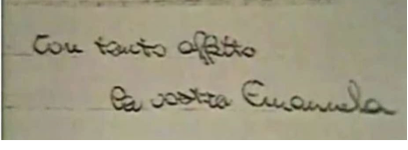 Con tanto affetto
la vostra Emanuela